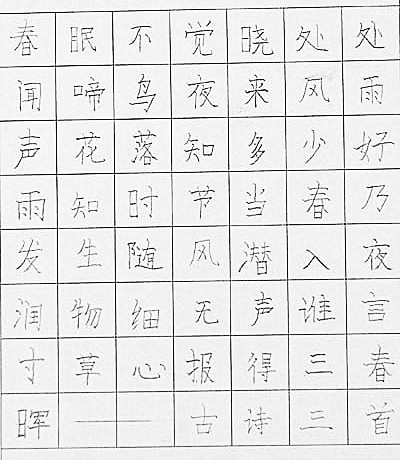 春眠不觉晓处处
闻啼鸟夜来风雨
声花落知多少好
雨知时节当春乃
发生随风潜入夜
润物细无声谁言
寸草心报得三春
晖——古诗三首